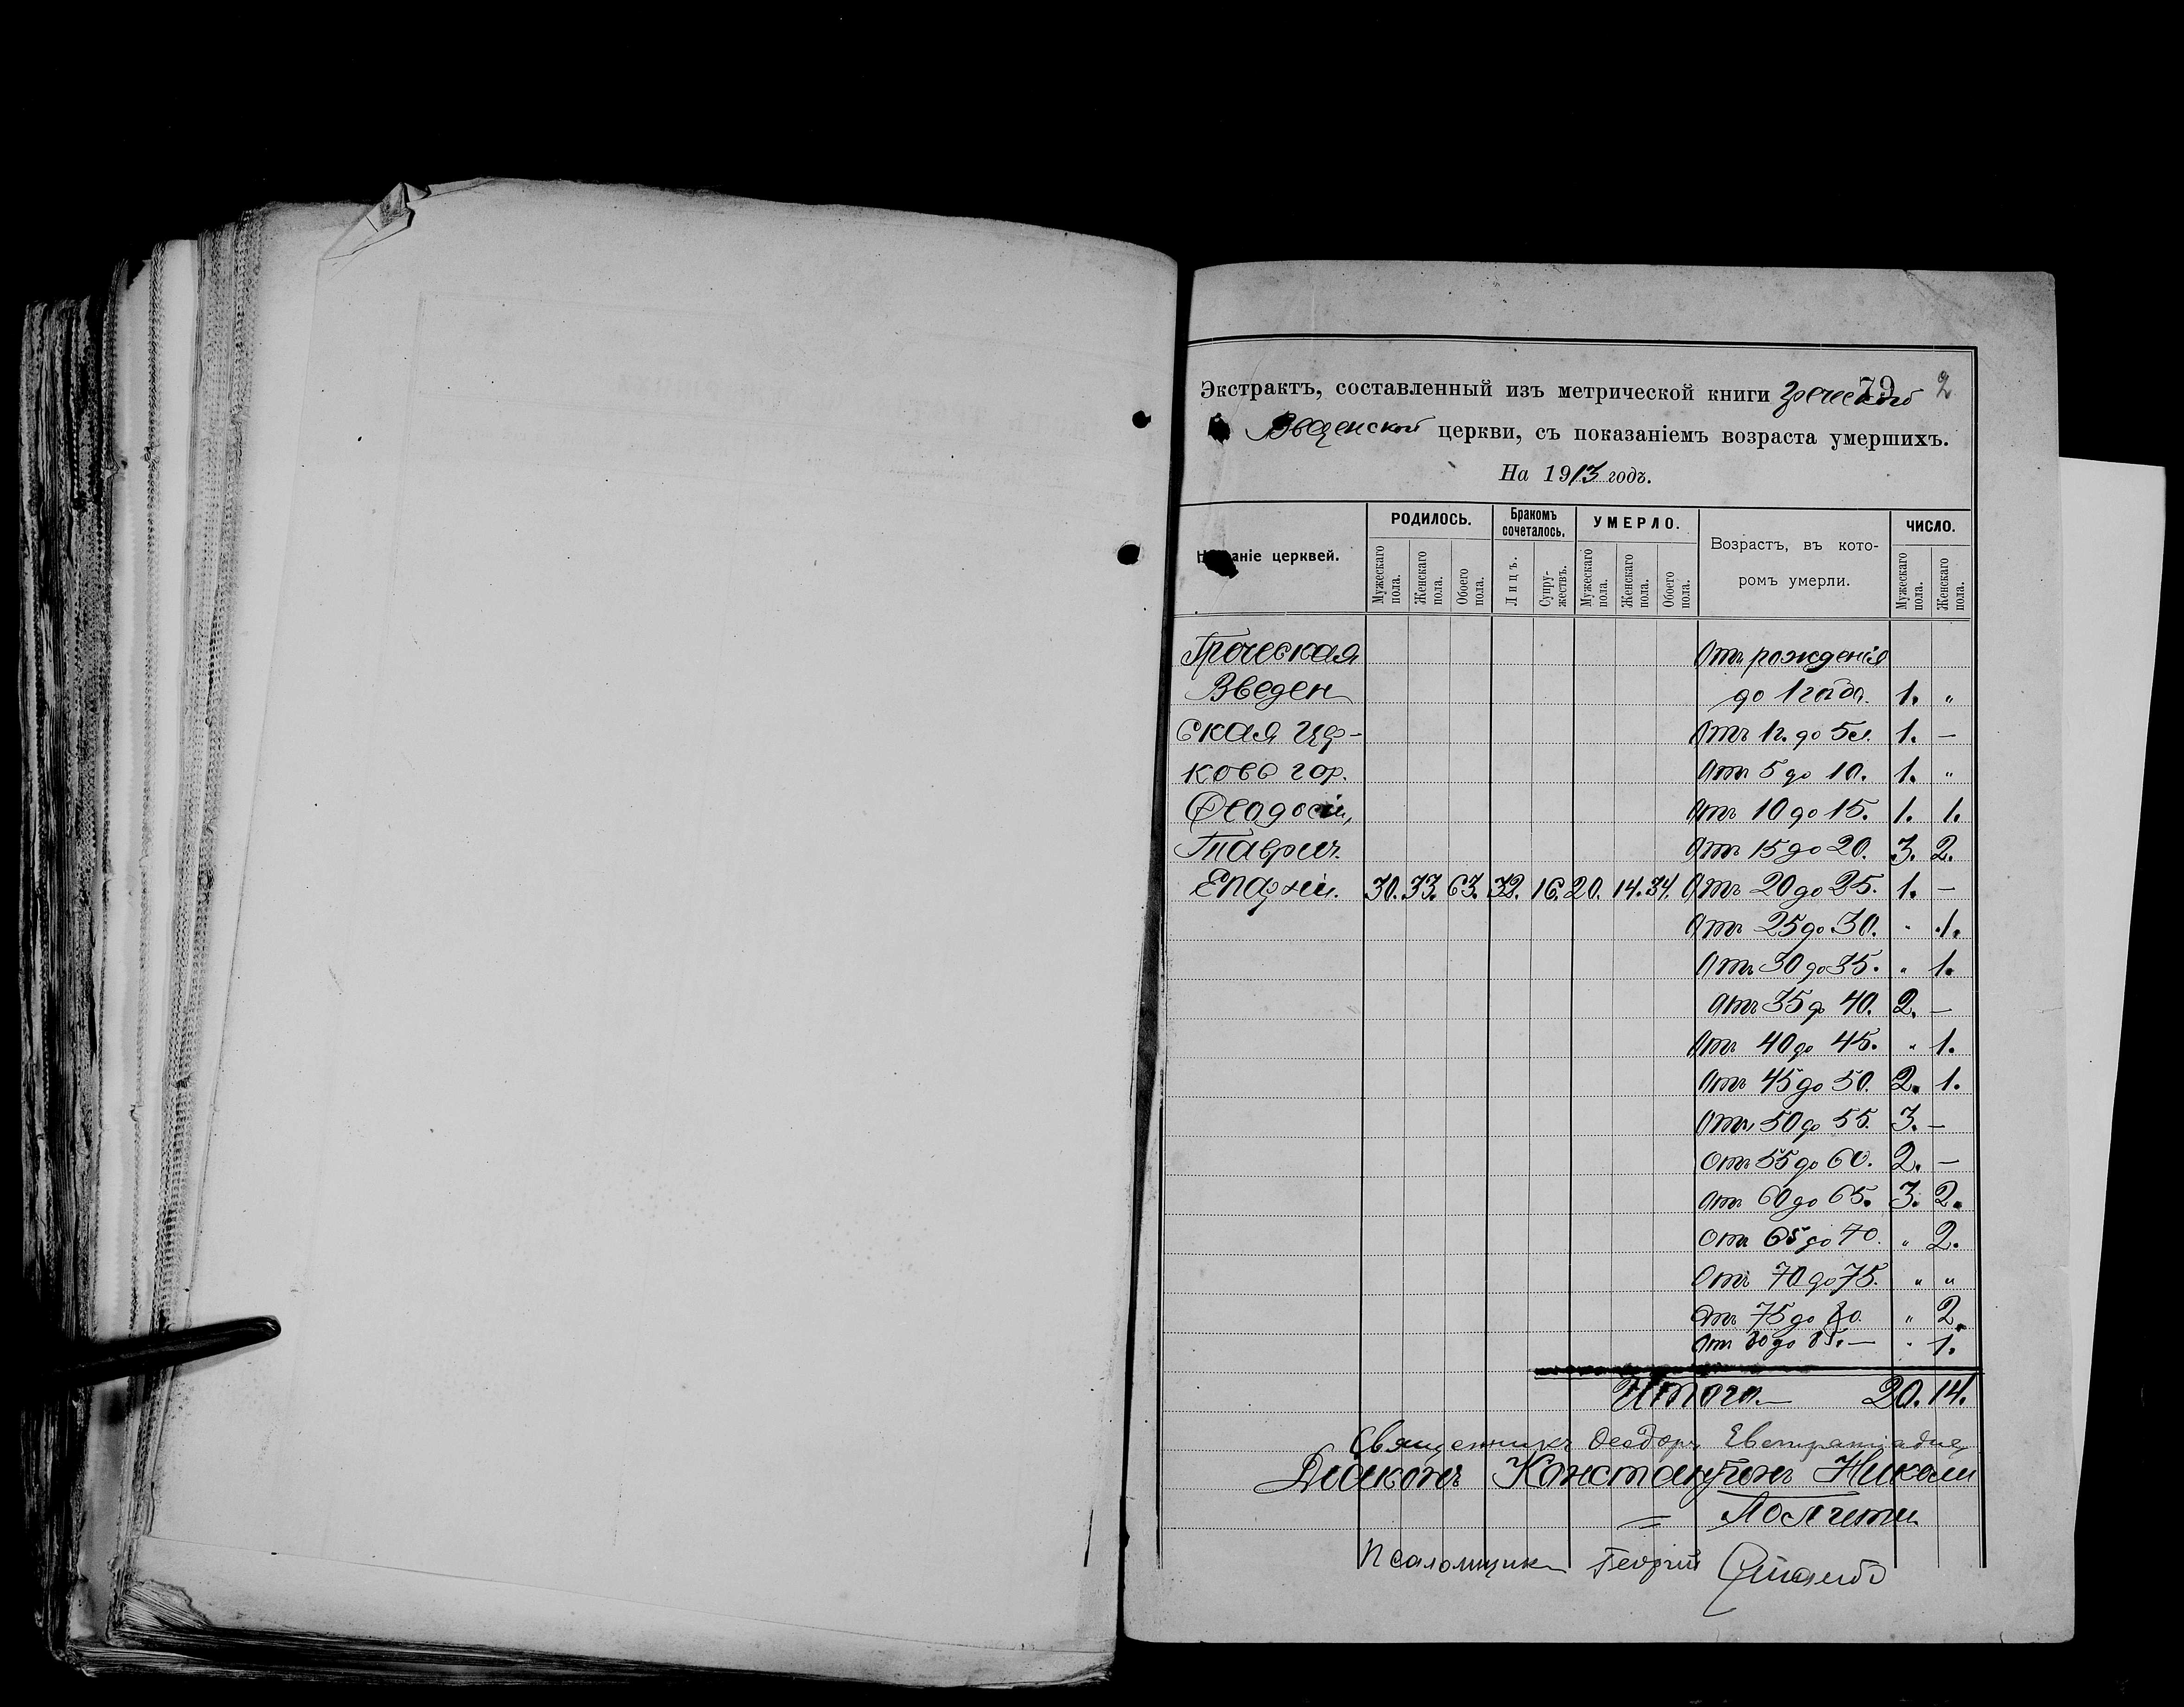 79 2
Экстрактъ, составленный изъ метрической книги греческой
Введенской церкви, съ показаніемъ возраста умершихъ.
На 1913 годъ.
Названіе церквей.
РОДИЛОСЬ.
Мужескаго пола.
Женскаго пола.
Обоего пола.
Бракомъ сочеталось.
Лицъ.
Супружествъ.
УМЕРЛО.
Мужескаго пола.
Женскаго пола.
Обоего пола.
Возрастъ, въ кото-
ромъ умерли.
ЧИСЛО.
Мужескаго пола.
Женскаго пола.
Греческая Отъ рожденія
Введен до 1 года. 1. „
ская Цер- Отъ 1 г. до 5 л. 1. —
ковь гор. Отъ 5 до 10. 1. „
Ѳеодосіи, Отъ 10 до 15. 1. 1.
Таврич. Отъ 15 до 20. 3. 2.
Епархіи. 30. 33. 63. 32. 16. 20. 14. 34. Отъ 20 до 25. 1. —
Отъ 25 до 30. „ 1.
Отъ 30 до 35. „ 1.
Отъ 35 до 40. 2. —
Отъ 40 до 45. „ 1.
Отъ 45 до 50. 2. 1.
Отъ 50 до 55. 3. —
Отъ 55 до 60. 2. —
Отъ 60 до 65. 3. 2.
Отъ 65 до 70. „ 2.
Отъ 70 до 75. „ „
Отъ 75 до 80. „ 2.
Отъ 80 до 85. — „ 1.
Итого — 20. 14.
Священникъ Ѳеодоръ Евстратіадис
Діаконъ Константинъ Николи
Псаломщикъ Георгій